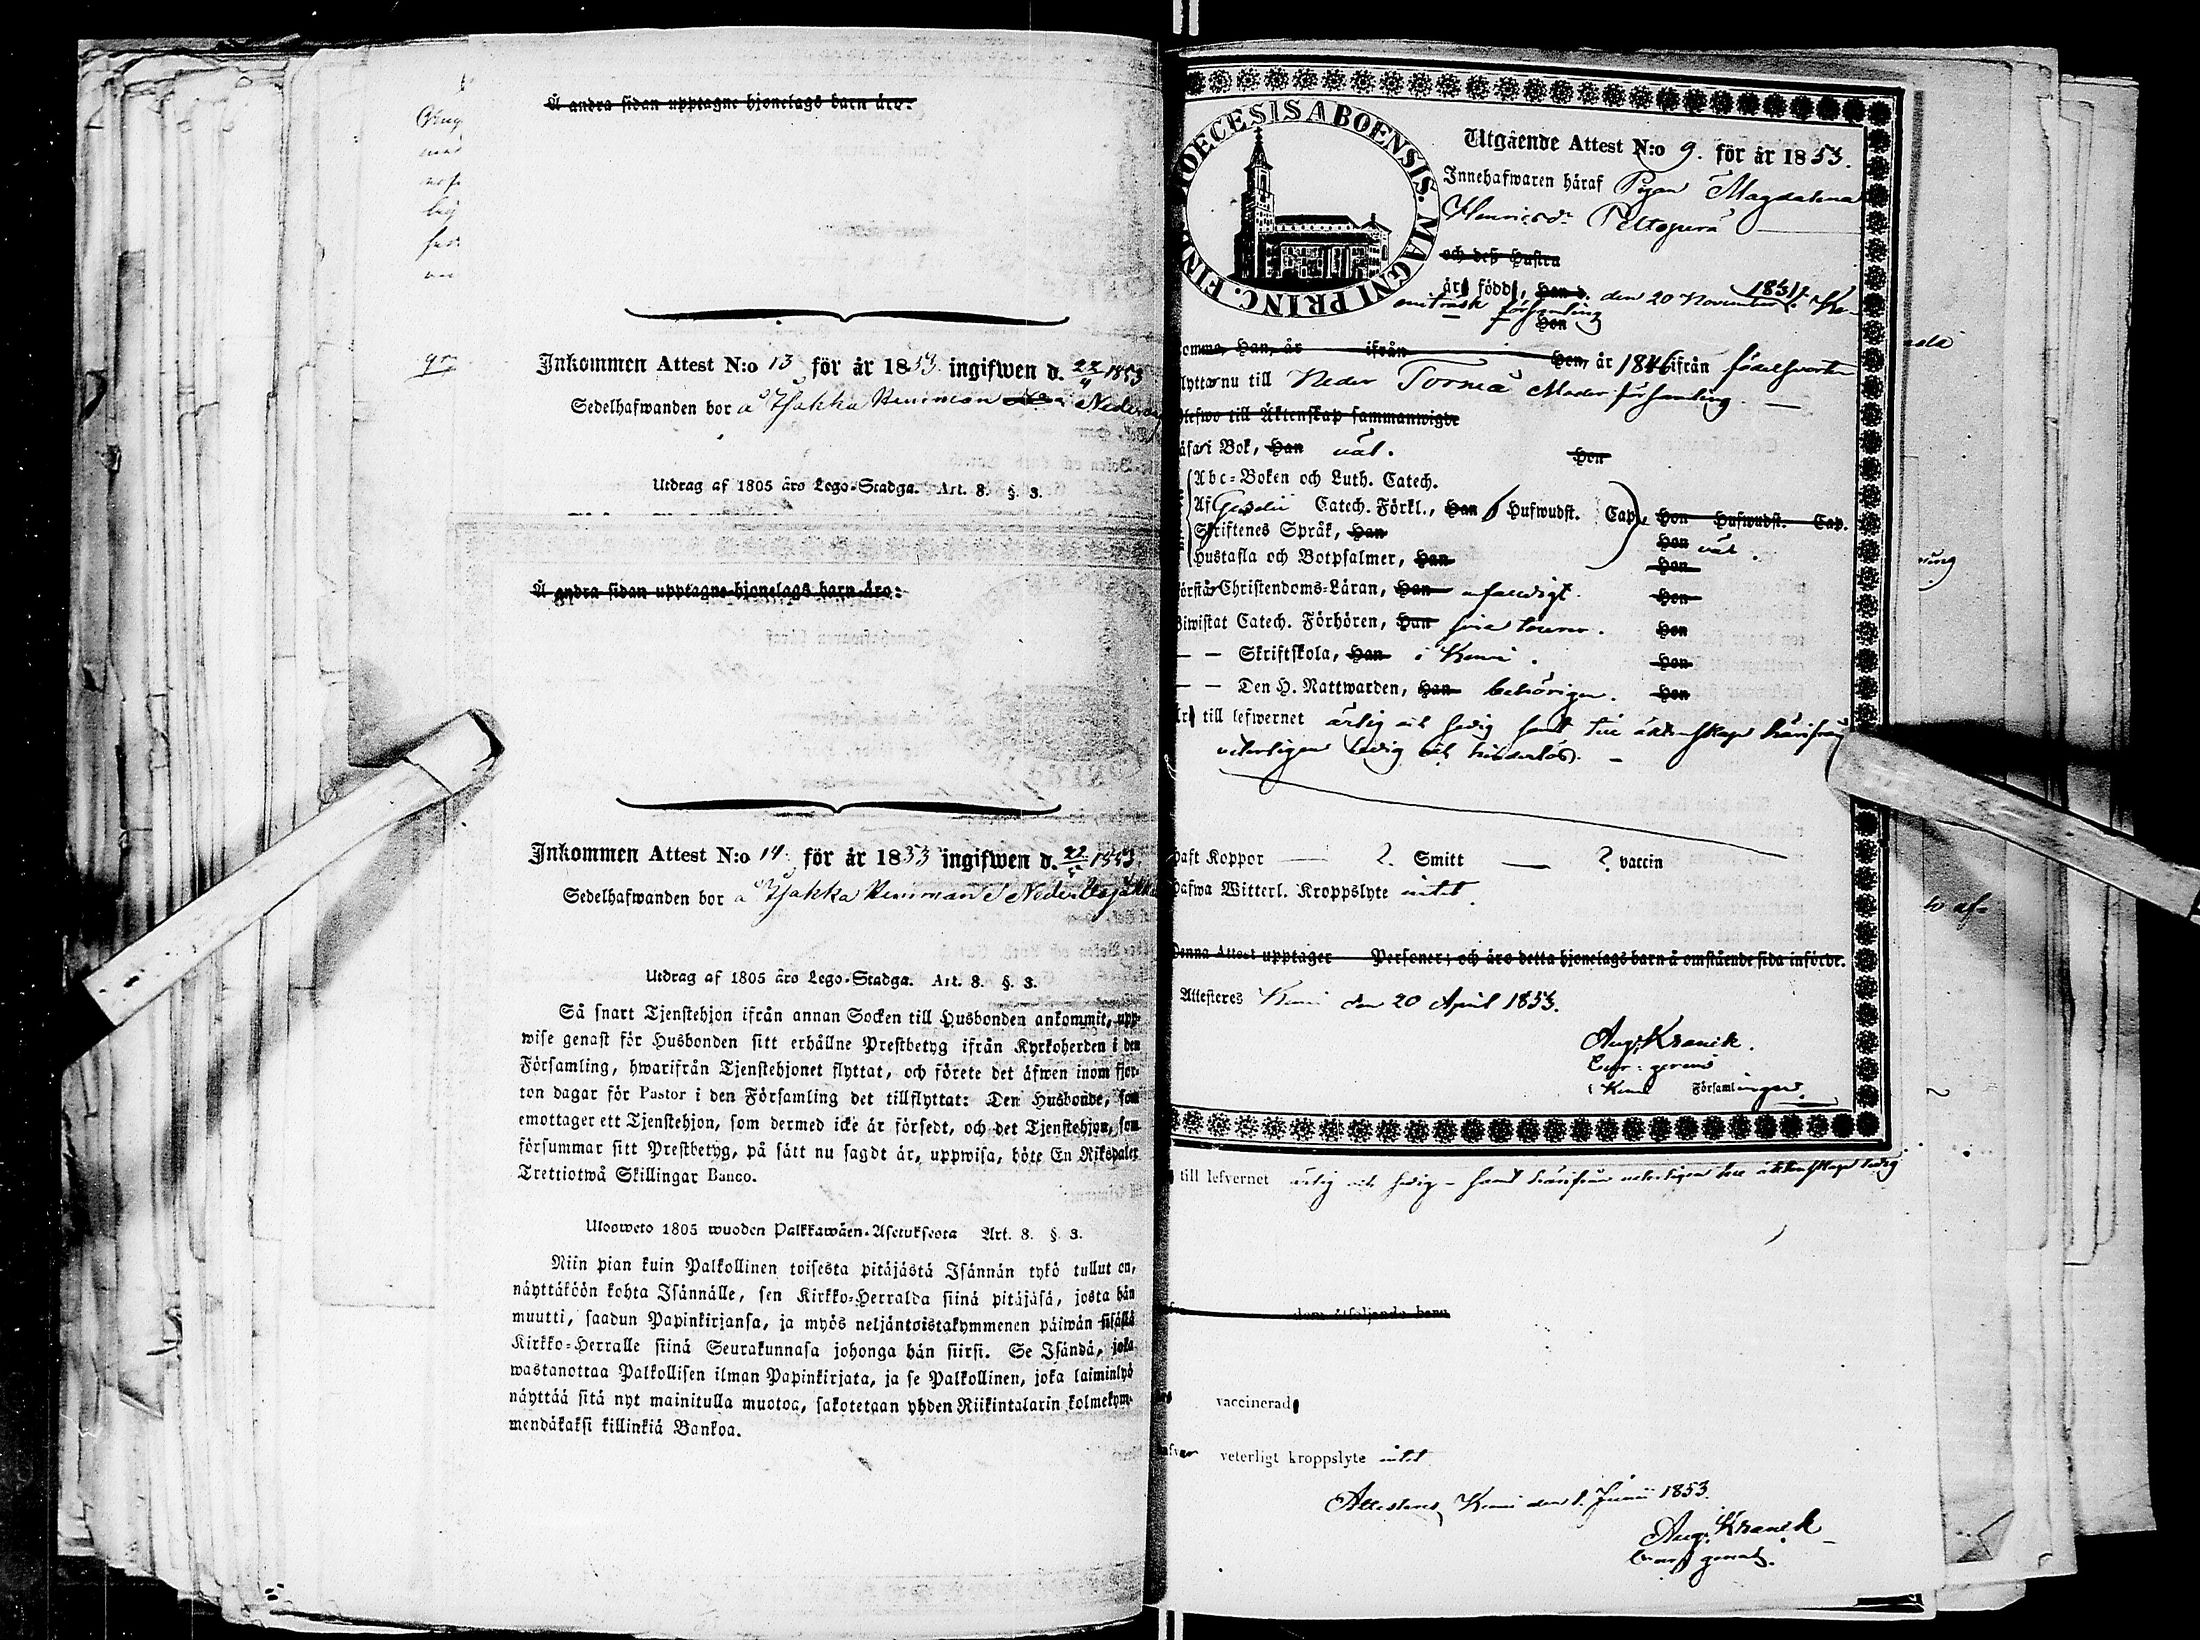 Å andra sidan upptagne hjonelags barn äro:
Inkommen Attest N:o 13 för år 1853 ingifwen d. 22/4 1853
Sedelhafwanden bor å
Utdrag af 1805 års Lego-Stadga. Art. 8. §. 3.
Å andra sidan upptagne hjonelags barn äro:
Inkommen Attest N:o 14. för år 1853 ingifwen d. 1853.
Sedelhafwanden bor å
Utdrag af 1805 års Lego-Stadga. Art. 8. §. 3.
Så snart Tjenstehjon ifrån annan Socken till Husbonden ankommit, upp-
wise genast för Husbonden sitt erhållne Prestbetyg ifrån Kyrkoherden i den
Församling, hwarifrån Tjenstehjonet flyttat, och förete det äfwen inom fjor-
ton dagar för Pastor i den Församling det tillflyttat: Den Husbonde, som
emottager ett Tjenstehjon, som dermed icke är försedt, och det Tjenstehjon, som
försummar sitt Prestbetyg, på sätt nu sagdt är, uppwisa, böte En Riksdaler
Trettiotwå Skillingar Banco.
Ulosweto 1805 wuoden Palkkawäen-Asetuksesta Art. 8. §. 3.
Niin pian kuin Palkollinen toisesta pitäjästä Isännän tykö tullut on,
näyttäköön kohta Isännälle, sen Kirkko-Herralda siinä pitäjäsä, josta hän
muutti, saadun Papinkirjansa, ja myös neljäntoistakymmenen päiwän sisällä
Kirkko-Herralle siinä Seurakunnasa johonga hän siirsi. Se Isändä, joka
wastanottaa Palkollisen ilman Papinkirjata, ja se Palkollinen, joka laiminlyö
näyttää sitä nyt mainitulla muotoa, sakotetaan yhden Riikintalarin kolmekym-
mendäkaksi killinkiä Bankoa.
DIOECESIS ABOENSIS. MAGNI PRINC. FIN
Utgående Attest N:o 9. för år 1853.
Innehafwaren häraf Pigan Magdalena
Henricsdr Peltoperä
och deß Hustru
är född, Han d. den 20 November 1831 i Ke-
miträsk församling
Hon
komne, Han, år ifrån Hon, år 1846 ifrån födelseorten
flyttar nu till Neder Torneå Moder församling. —
Blefwo till Äktenskap sammanwigde
Läsa i Bok, Han väl. Hon
Abc-Boken och Luth. Catech.
Af Gezelii Catech. Förkl., Han Hufwudst. Cap. Hon Hufwudst. Cap.
Skriftenes Språk, Han Hon väl.
Hustafla och Botpsalmer, Han Hon
Förstår Christendoms-Läran, Han Hon
Biwistat Catech. Förhören, Han Hon
— — Skriftskola, Han i Kemi. Hon
— — Den H. Nattwarden, Han behörigen. Hon
Är till lefwernet ärlig och sedig samt till äktenskap härifrån
veterligen ledig och hinderlös. —
Haft Koppor — ?. Smitt — ? vaccin
Hafwa Witterl. Kroppslyte intet.
Denna Attest upptager Personer; och äro detta hjonelags barn å omstående sida införde.
Attesteres Kemi den 20 April 1853.
Aug. Kranck.
i Kemi Församlingar.
till lefvernet ärlig och sedig – samt härifrån veterligen till äktenskap ledig
dem åtföljande barn
vaccinerad
veterligt kroppslyte intet
Attesteras Kemi den 1. Junii 1853.
Aug. Kranck